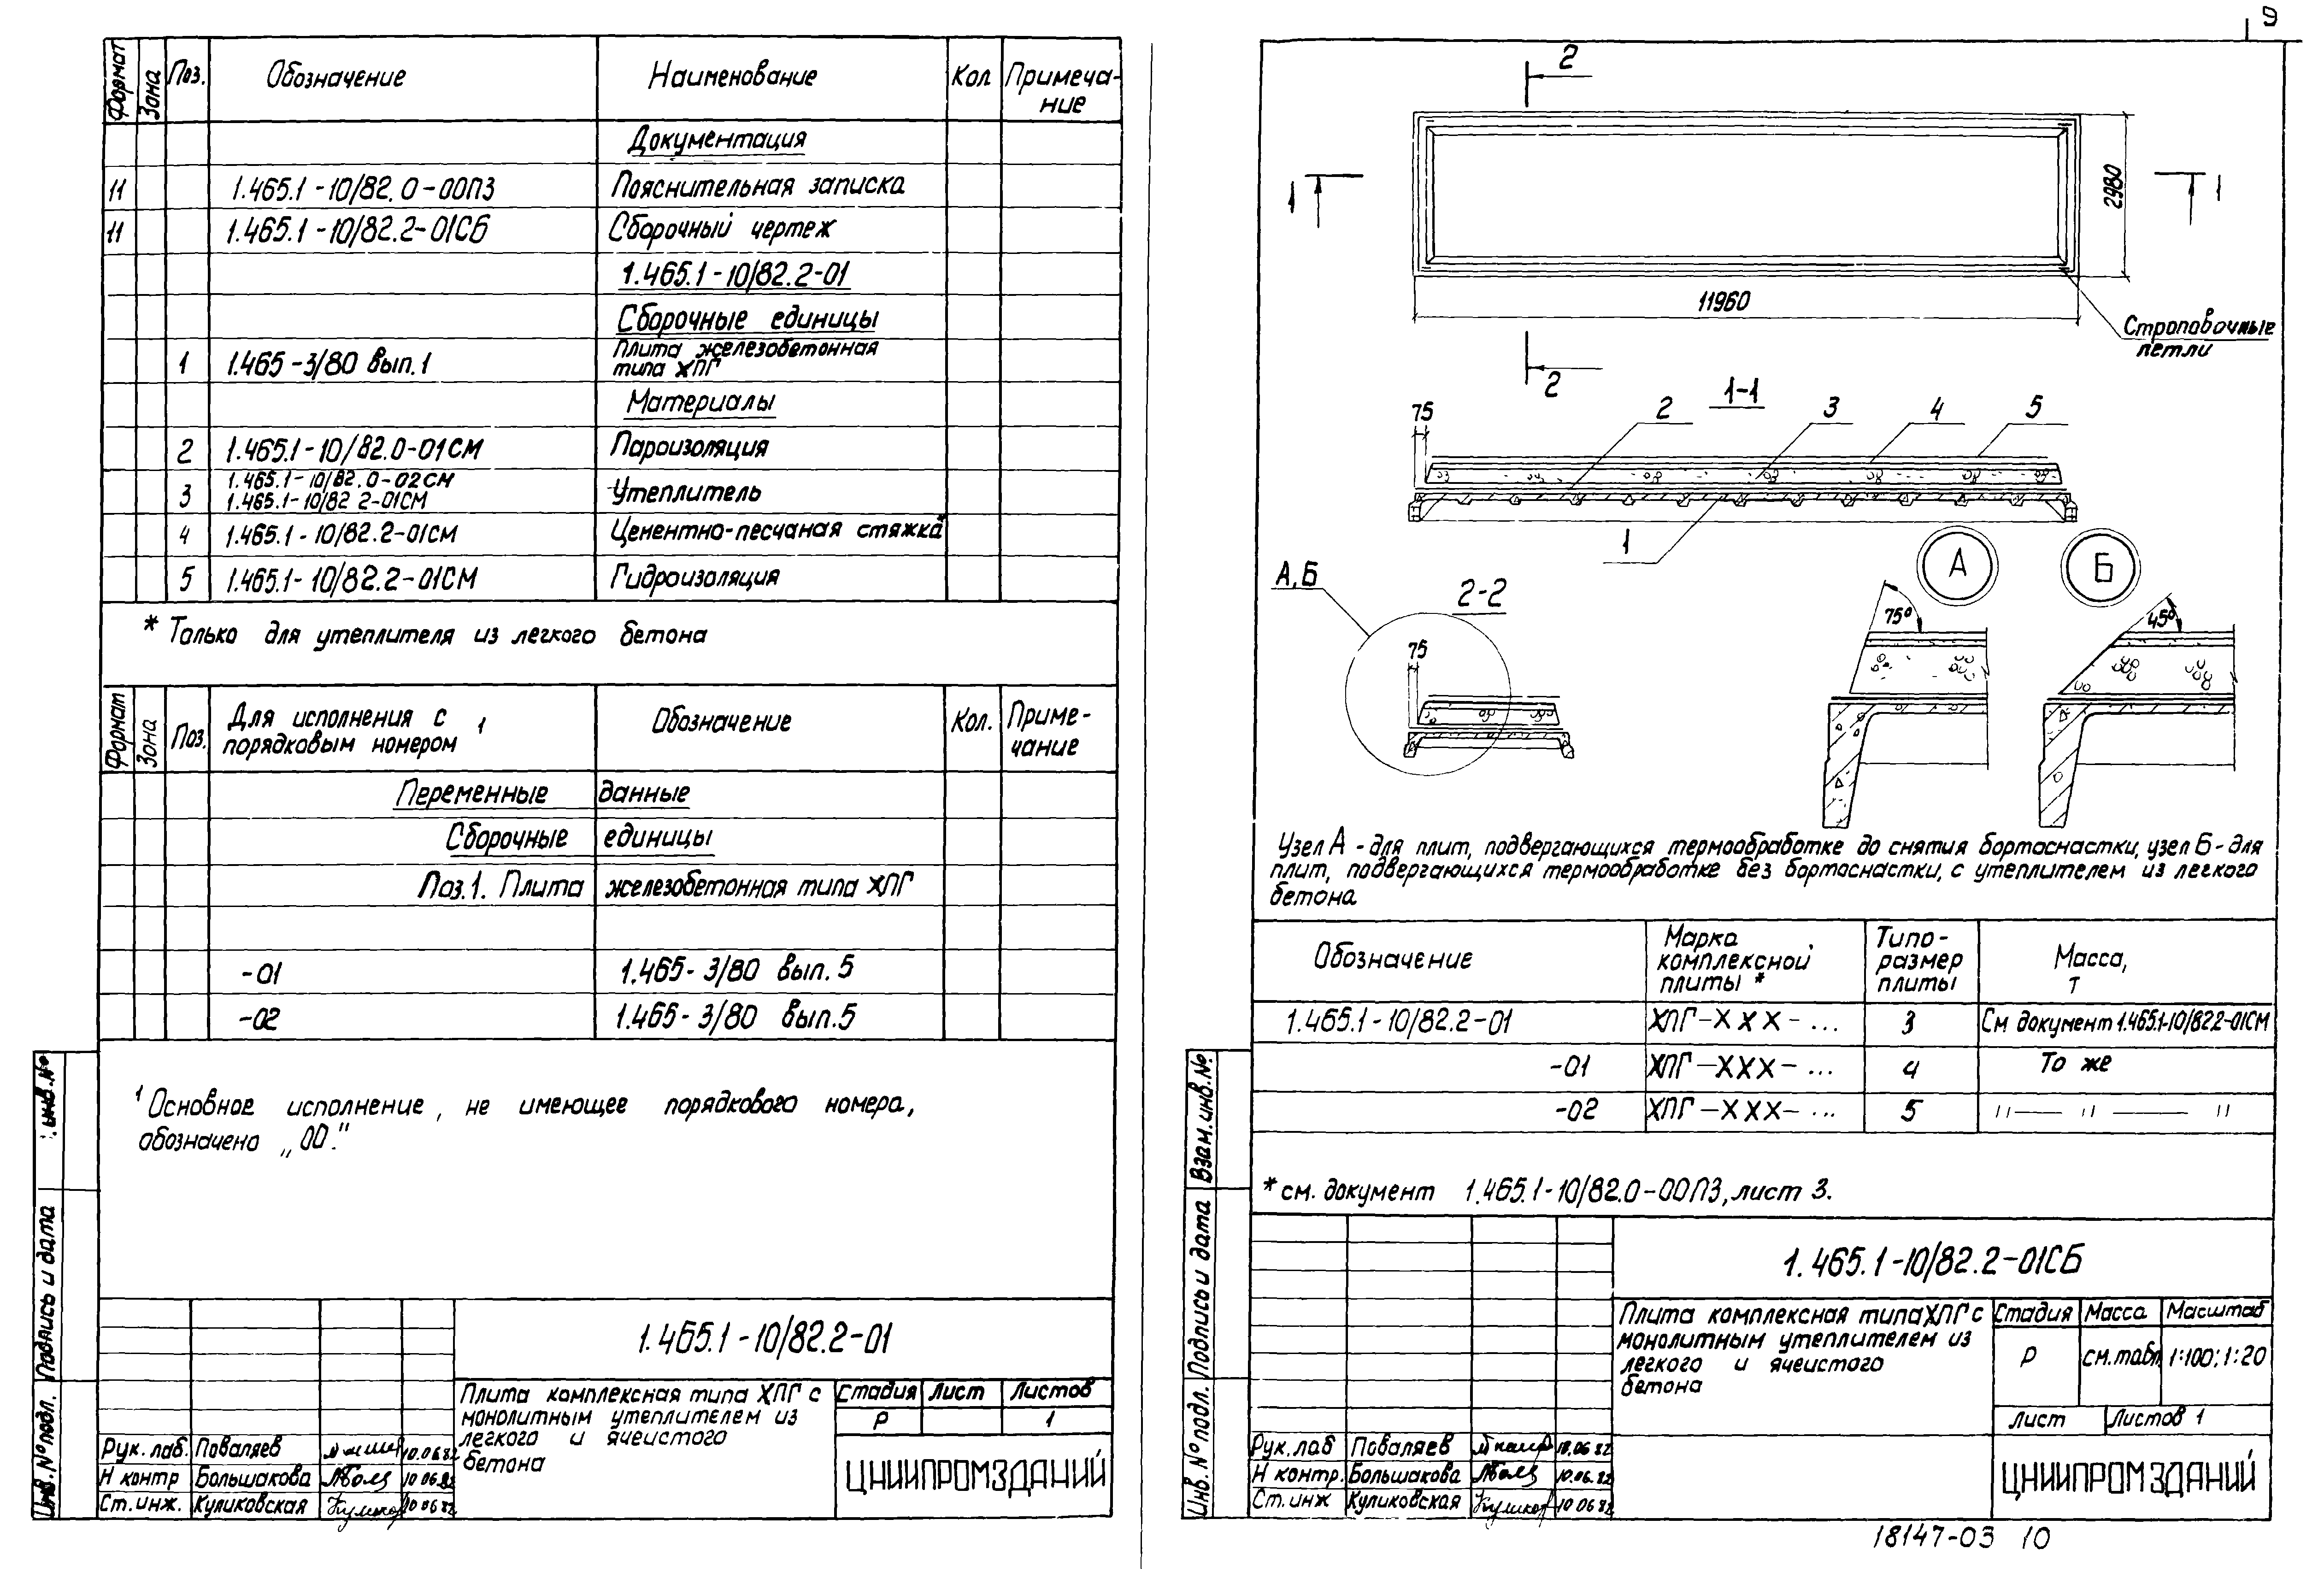 Формат Зона Поз. Обозначение Наименование Кол Примеча-
ние
Документация
11 1.465.1-10/82.0-00ПЗ Пояснительная записка
11 1.465.1-10/82.2-01СБ Сборочный чертеж
1.465.1-10/82.2-01
Сборочные единицы
1 1.465-3/80 вып.1 Плита железобетонная
типа ХПГ
Материалы
2 1.465.1-10/82.0-01СМ Пароизоляция
1.465.1-10/82.0-02СМ
3 1.465.1-10/82 2-01СМ Утеплитель
4 1.465.1-10/82.2-01СМ Цементно-песчаная стяжка*
5 1.465.1-10/82.2-01СМ Гидроизоляция
* Только для утеплителя из легкого бетона
Формат Зона Поз. Для исполнения с
порядковым номером 1 Обозначение Кол. Приме-
чание
Переменные данные
Сборочные единицы
Поз.1. Плита железобетонная типа ХПГ
-01 1.465-3/80 вып. 5
-02 1.465-3/80 вып.5
1 Основное исполнение, не имеющее порядкового номера,
обозначено „00."
инв.№
Подпись и дата
Инв.№подл.
1.465.1-10/82.2-01
Плита комплексная типа ХПГ с
монолитным утеплителем из
легкого и ячеистого
бетона
Стадия Лист Листов
Р 1
ЦНИИПРОМЗДАНИЙ
Рук. лаб. Поваляев 10.06.82
Н контр Большакова 10.06.82
Ст. инж. Куликовская 10 06 82
9
2
1 1
2980
11960
Строповочные
петли
2
1-1
75 2 3 4 5
1
А Б
А,Б
2-2
75
75°
45°
Узел А - для плит, подвергающихся термообработке до снятия бортоснастки, узел Б - для
плит, подвергающихся термообработке без бортоснастки, с утеплителем из легкого
бетона
Обозначение Марка
комплексной
плиты * Типо-
размер
плиты Масса,
т
1.465.1-10/82.2-01 ХПГ-ХХХ-... 3 См документ 1.465.1-10/82.2-01СМ
-01 ХПГ-ХХХ-... 4 То же
-02 ХПГ-ХХХ-... 5 "— " — "
* см. документ 1.465.1-10/82.0-00ПЗ, лист 3.
Взам.инв.№
Подпись и дата
Инв.№подл.
1.465.1-10/82.2-01СБ
Плита комплексная типа ХПГ с
монолитным утеплителем из
легкого и ячеистого
бетона
Стадия Масса Масштаб
Р см.табл 1:100; 1:20
Лист Листов 1
ЦНИИПРОМЗДАНИЙ
Рук. лаб Поваляев 10.06 82
Н контр. Большакова 10.06.82
Ст. инж Куликовская 10 06 82
18147-03 10